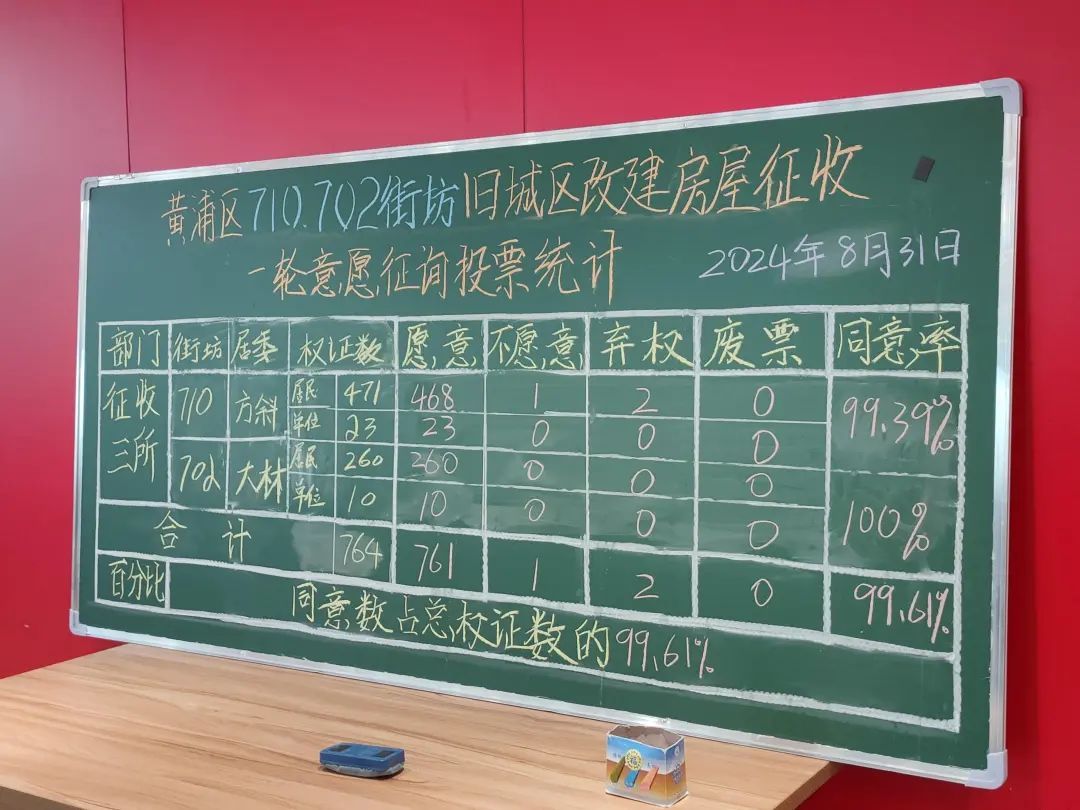 黄浦区710.702街坊旧城区改建房屋征收
一轮意愿征询投票统计 2024年8月31日
部门 街坊 居委 权证数 愿意 不愿意 弃权 废票 同意率
征收三所 710 方斜 居民 471 468 1 2 0 99.39%
单位 23 23 0 0 0
702 大林 居民 260 260 0 0 0 100%
单位 10 10 0 0 0
合计 764 761 1 2 0 99.61%
百分比 同意数占总权证数的99.61%